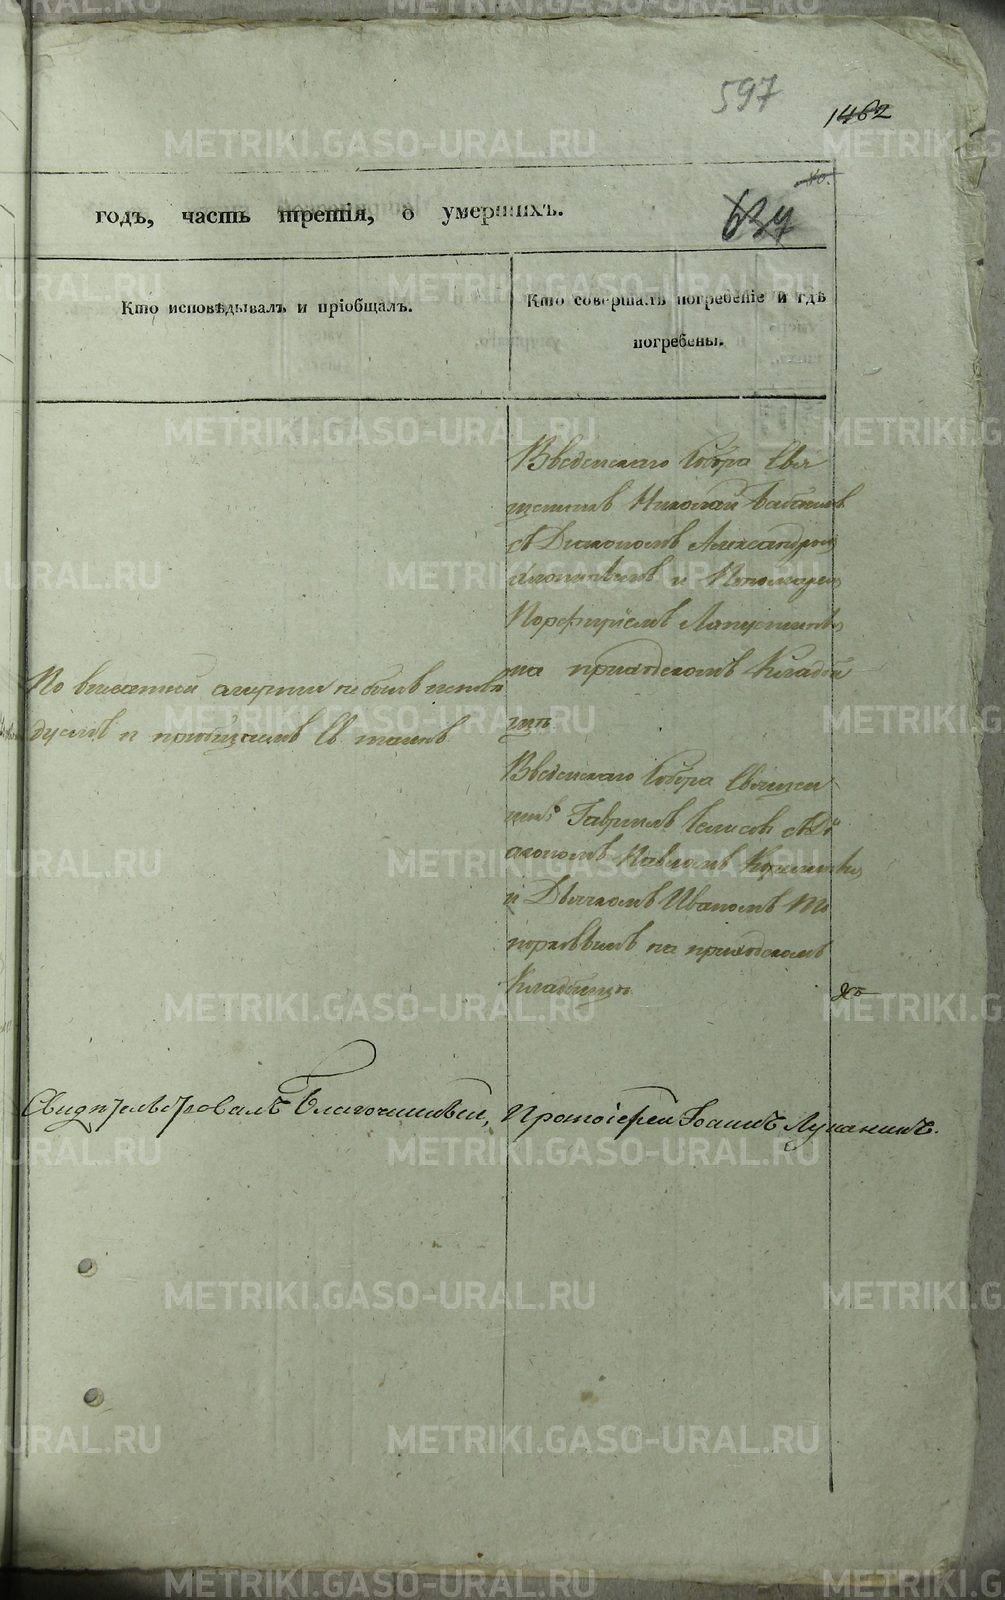 597
1462
80.
637
годъ, часть третія, о умершихъ.
Кто исповѣдывалъ и пріобщалъ.
Кто совершалъ погребеніе и гдѣ
погребены.
Введенскаго Собора Свя
щенникъ Николай
съ Діакономъ Александромъ
и Пономаремъ
Порфиріемъ Лапустинымъ
на приходскомъ Кладби
щѣ
По внезапной смерти не былъ исповѣ
дуемъ и пріобщаемъ Св. таинъ
Введенскаго Собора Священ
никъ Гавріилъ съ Ді
акономъ Павломъ
и Дьячкомъ Иваномъ То
порковымъ на приходскомъ
Кладбищѣ
Свидѣтельствовалъ Благочинный, Протоіерей Іоаннъ Луканинъ.
METRIKI.GASO-URAL.RU